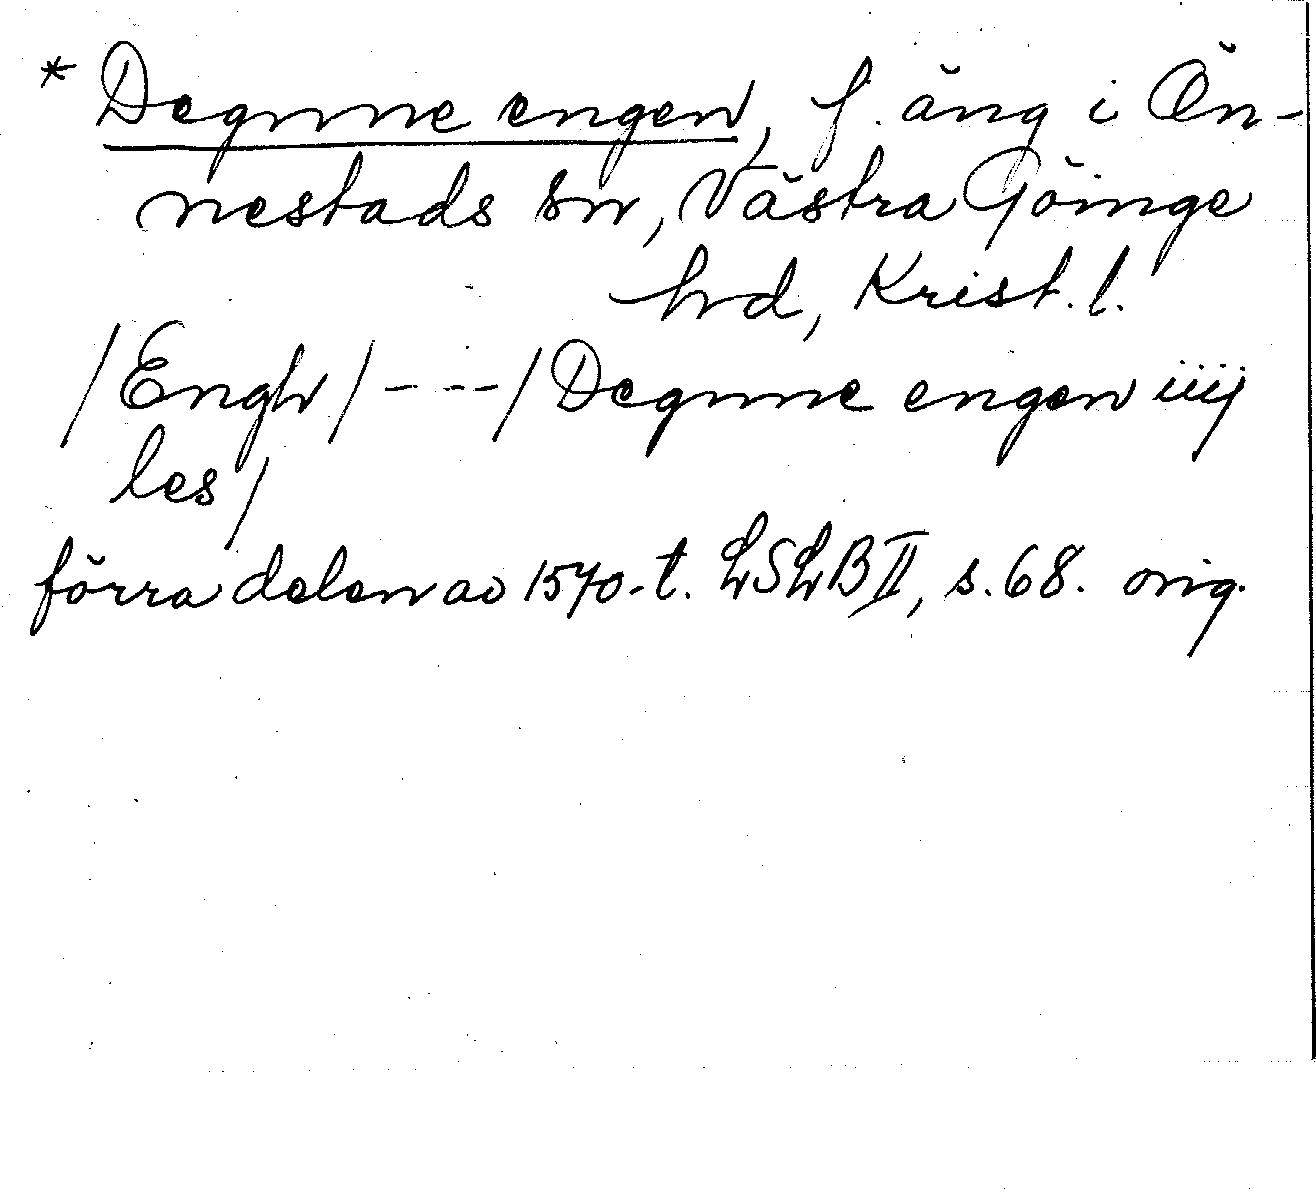 * Degnne engen, f. äng i Ön-
nestads sn, Västra Göinge
hd, Krist. l.
/Engh/---/Degnne engen iiij
les/
förra delen av 1570-t. LSLB II, s. 68. orig.